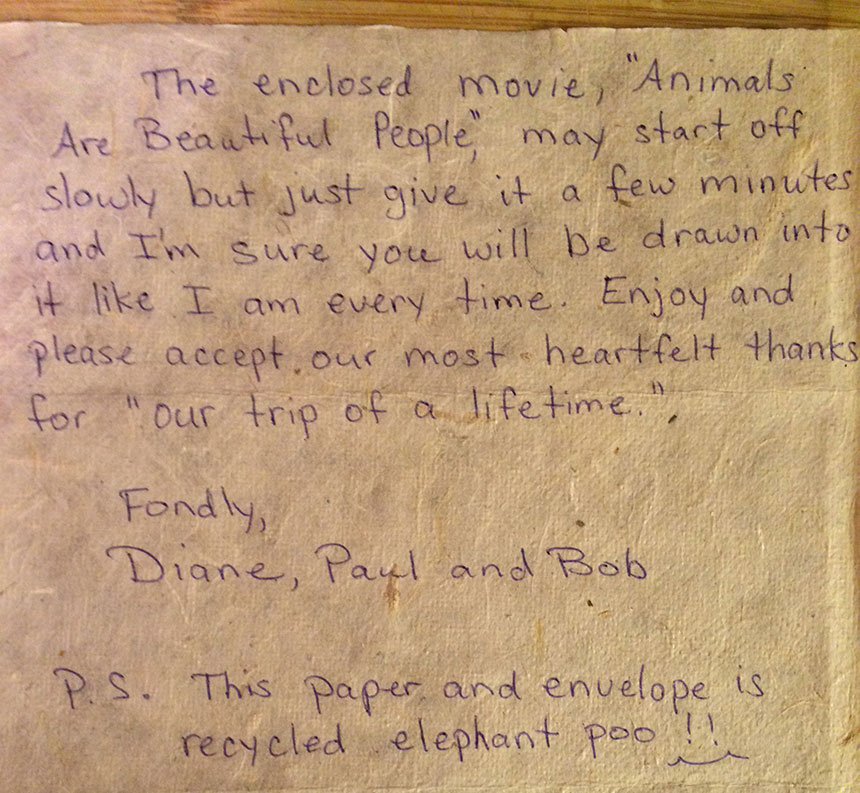 The enclosed movie, "Animals
Are Beautiful People", may start off
slowly but just give it a few minutes
and I'm sure you will be drawn into
it like I am every time. Enjoy and
please accept our most heartfelt thanks
for "our trip of a lifetime."
Fondly,
Diane, Paul and Bob
P.S. This paper and envelope is
recycled elephant poo!!